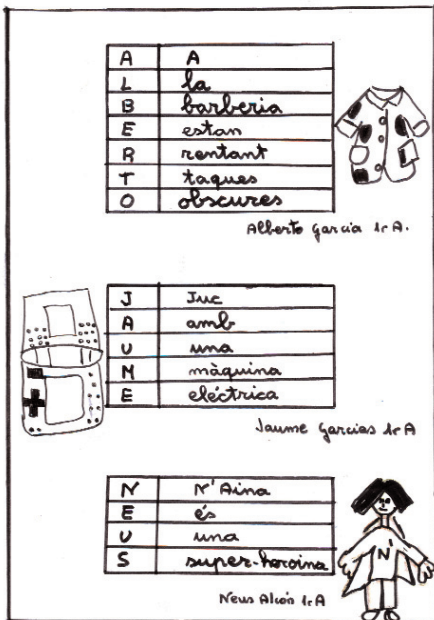 A A
L la
B barberia
E estan
R rentant
T taques
O obscures
Alberto Garcia 1r A.
J Juc
A amb
U una
M màquina
E eléctrica
Jaume Garcias 1r A
N N'Aina
E és
U una
S super-heroina
N'
Neus Alcón 1r A